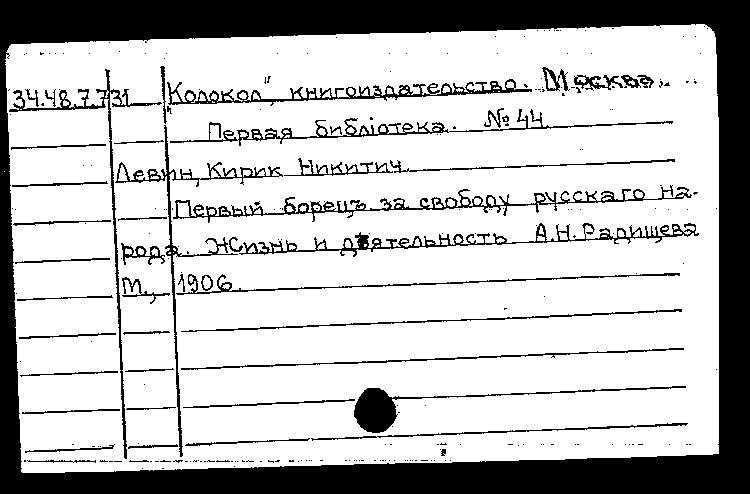 34.48.7.731 „Колокол", книгоиздательство. Москва.
Первая библіотека. № 44
Левин, Кирик Никитич
Первый борецъ за свободу русскаго на-
рода. Жизнь и дѣятельность А.Н. Радищева
М., 1906.